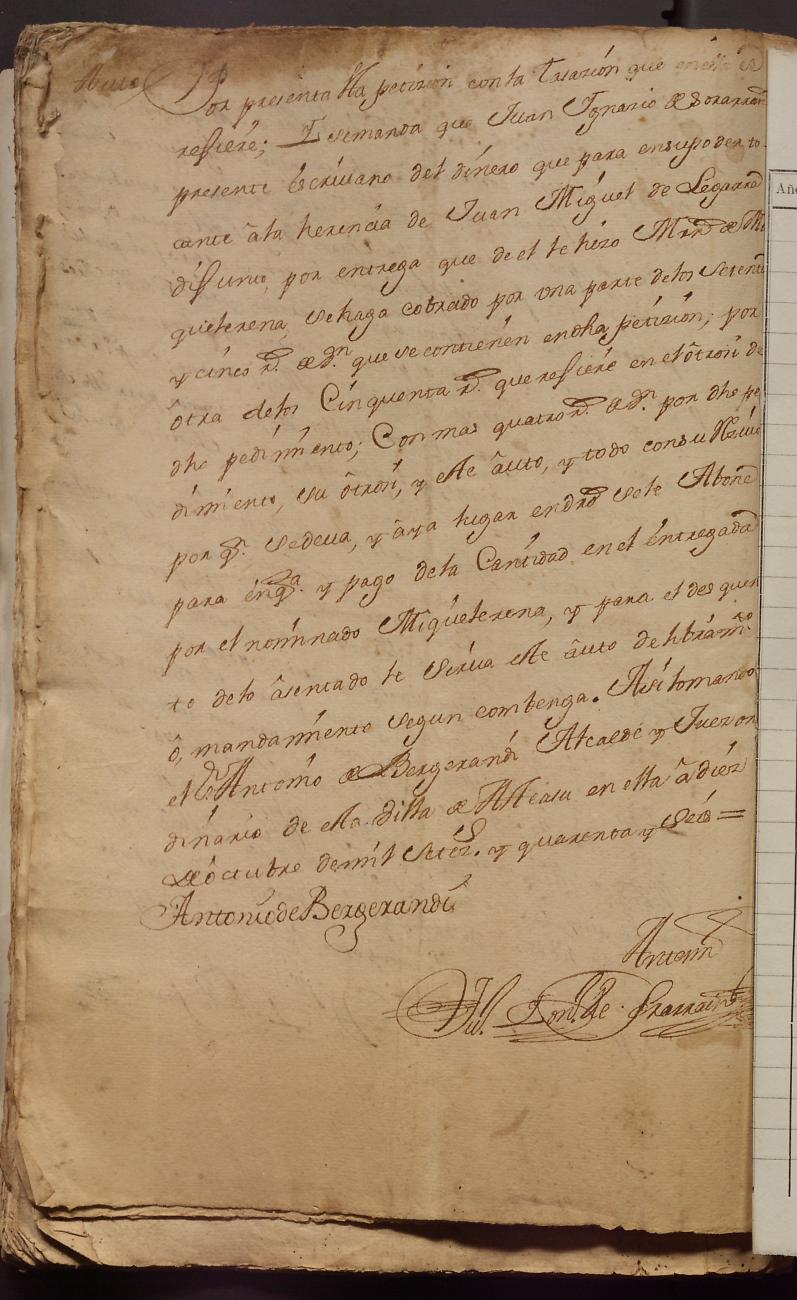 Auto Por presenta Ɖta petizion con la tasazion que en ella se
refiere; I semanda que Juan Ignazio de Sorarrain
presente escriuano del dinero que para ensupoder to
cante â la herencia de Juan Miguel de Legarra
difunto, por entrega que de el le hizo Mrn de Mi
queterena, sehaga cobrado por vna parte delos setenta
y cinco rs. de pn. que se contienen en dha petizion; por
ôtra delos Cinquenta rs. que refiere en el ôtrosi de
dho pedimiento; Con mas quatro rs. de pn. por dho pe
dimiento, su ôtrosi, y este âuto, y todo consu
por qe. sedeua, y aya lugar en dro sele Abone
para en qta. y pago dela Cantidad en el entregada
por el nominado Miqueterena, y para el des quen
to delo âsentado le sirua este âuto de libramto.
ô, mandamiento segun combenga. Asilomando
el Sr. Antonio de Bergerandi Alcalde y Juez or
dinario de esta villa de Alcasu en ella â diez
de octubre de mil setezs. y quarenta y seis =
Antonio de Bergerandi
Antemi
Ju. Igno. de Sorarrain